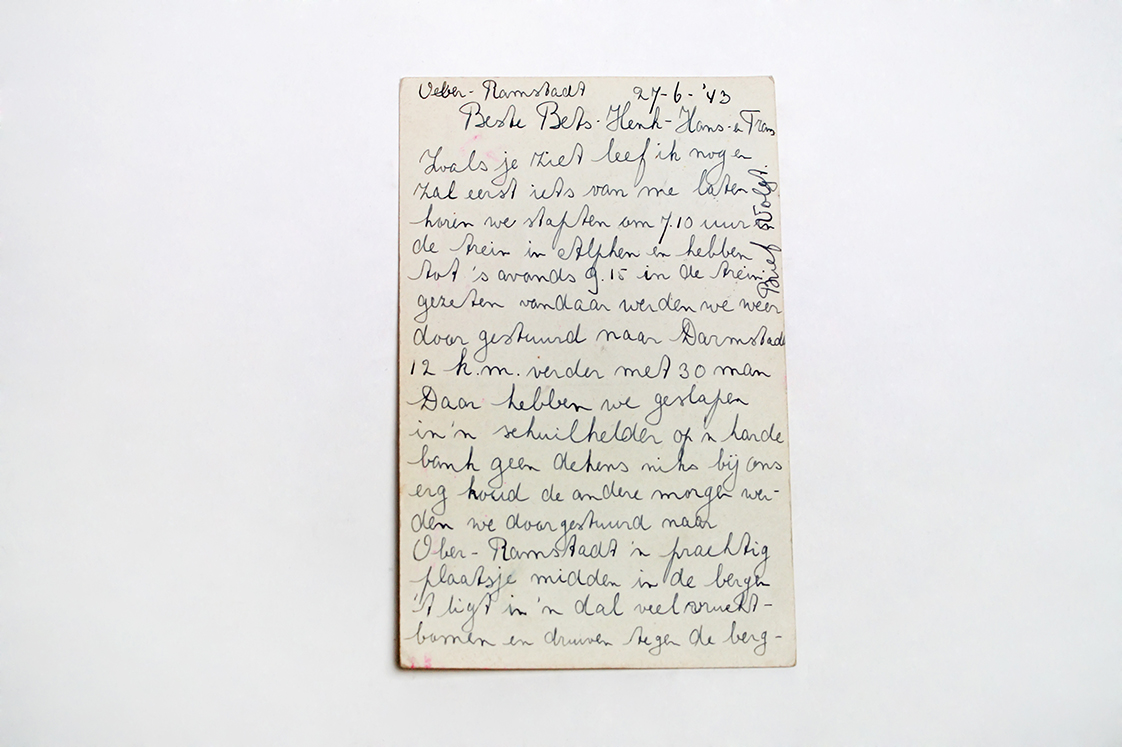 Ueber-Ramstadt 27-6-'43
Beste Bets-Henk-Hans-en Frans
Zoals je ziet leef ik nog en
zal eerst iets van me laten
horen we stapten om 7.10 uur in
de trein in Alphen en hebben
tot 's avonds 9.15 in de trein
gezeten vandaar werden we weer
door gestuurd naar Darmstadt
12 k.m. verder met 30 man
Daar hebben we geslapen
in 'n schuilkelder op 'n harde
bank geen dekens niks bij ons
erg koud de andere morgen wer-
den we doorgestuurd naar
Ober-Ramstadt 'n prachtig
plaatsje midden in de bergen
't ligt in 'n dal veel vrucht-
bomen en druiven tegen de berg-
Brief Volgt.